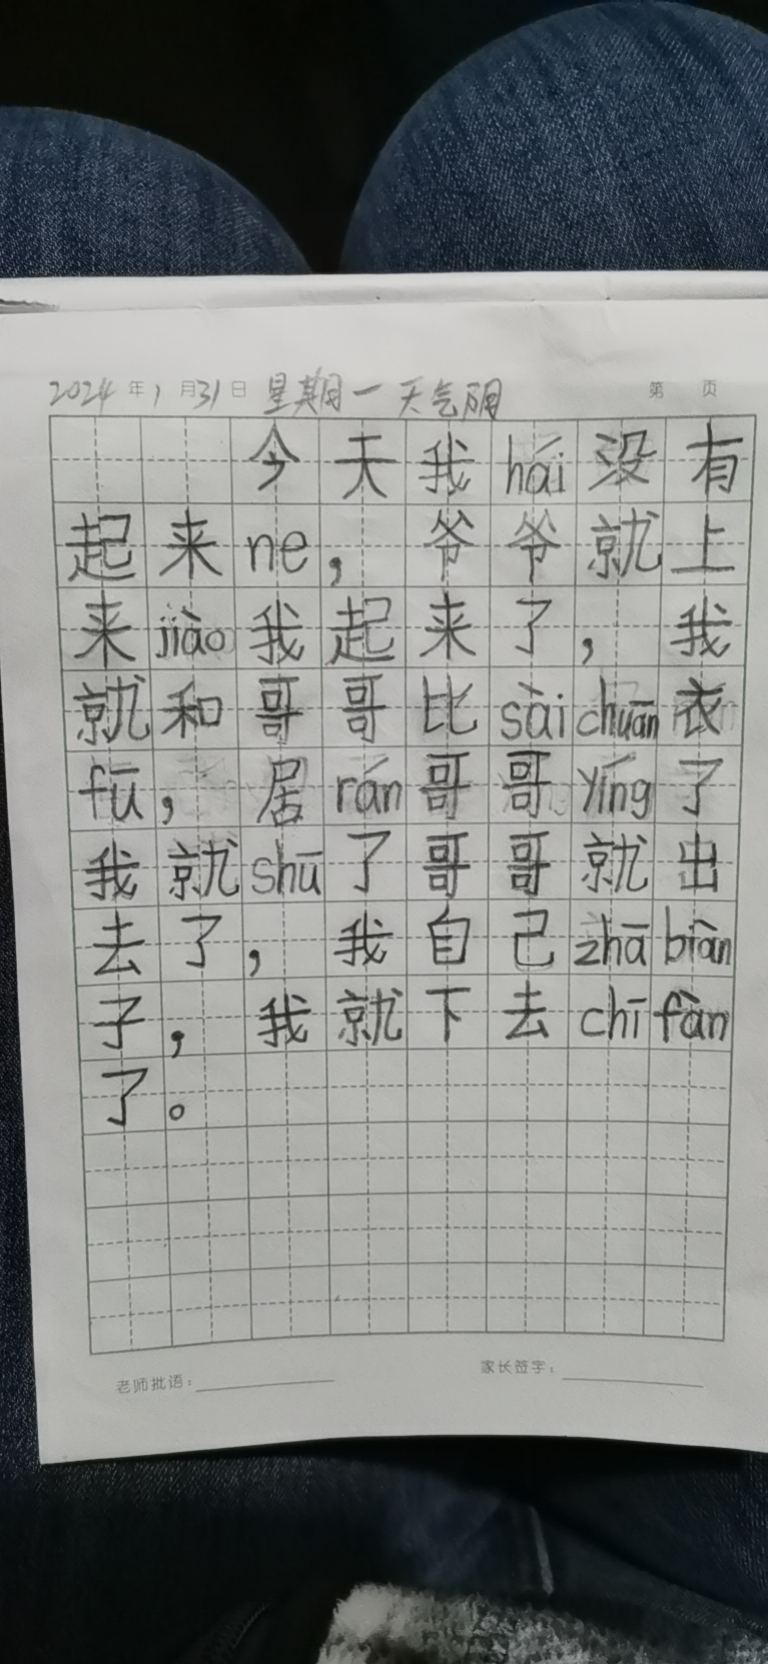 2024年1月31日 星期一 天气阴 第 页
今天我hái没有
起来ne，爷爷就上
来jiào我起来了，我
就和哥哥比sàichuān衣
fū，居rán哥哥yíng了
我就shū了哥哥就出
去了，我自己zhābiàn
子，我就下去chīfàn
了。
老师批语： 家长签字：